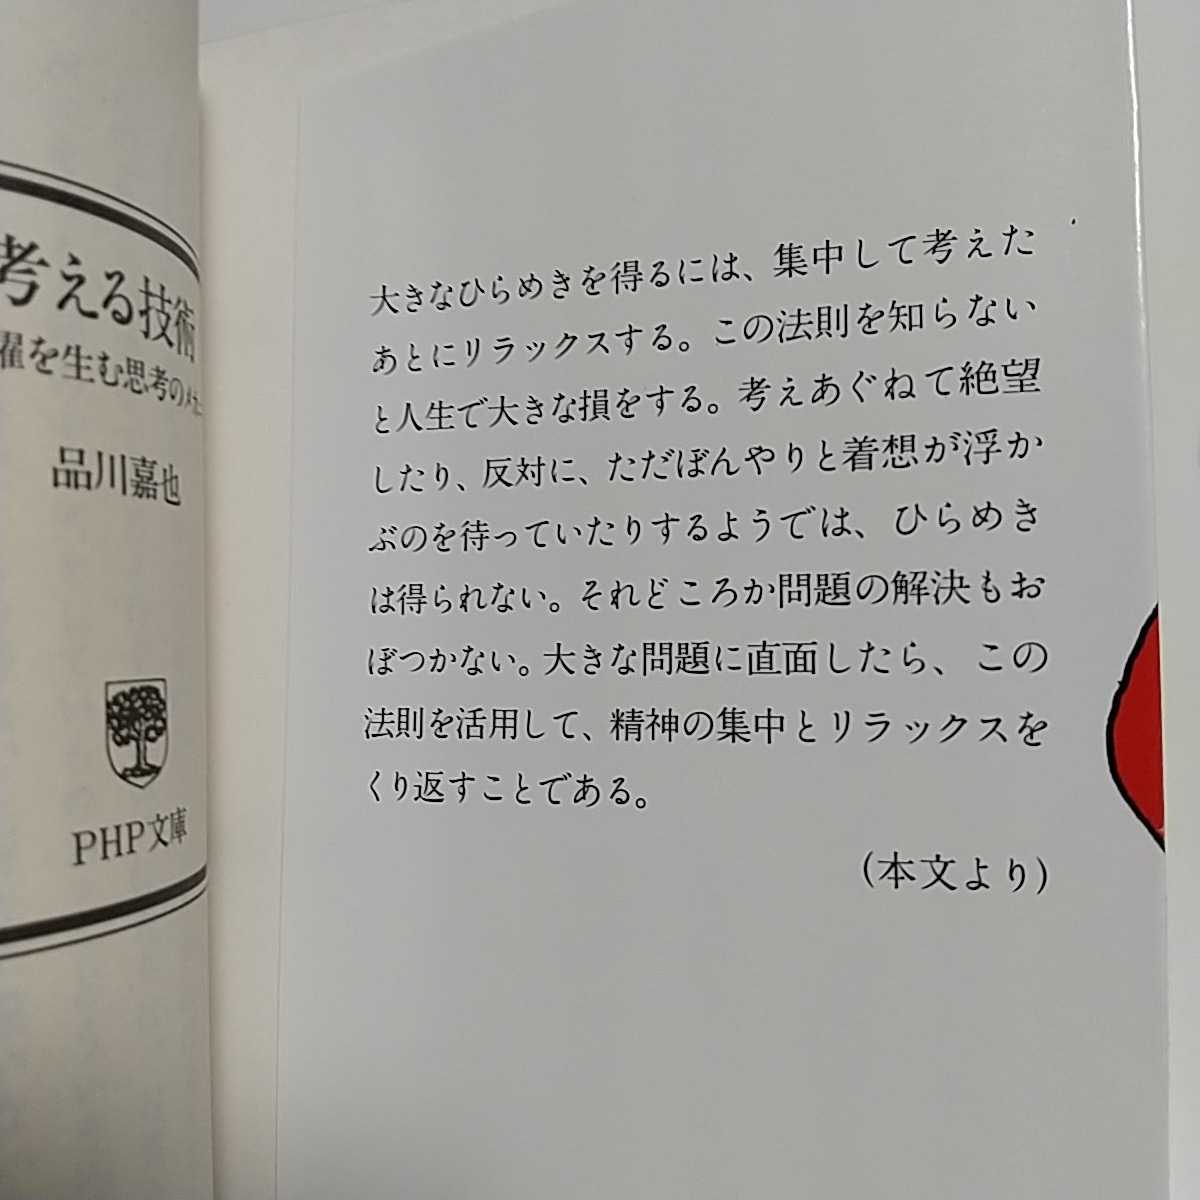 考える技術
躍を生む思考のメカ
品川嘉也
PHP文庫
大きなひらめきを得るには、集中して考えた
あとにリラックスする。この法則を知らない
と人生で大きな損をする。考えあぐねて絶望
したり、反対に、ただぼんやりと着想が浮か
ぶのを待っていたりするようでは、ひらめき
は得られない。それどころか問題の解決もお
ぼつかない。大きな問題に直面したら、この
法則を活用して、精神の集中とリラックスを
くり返すことである。
(本文より)